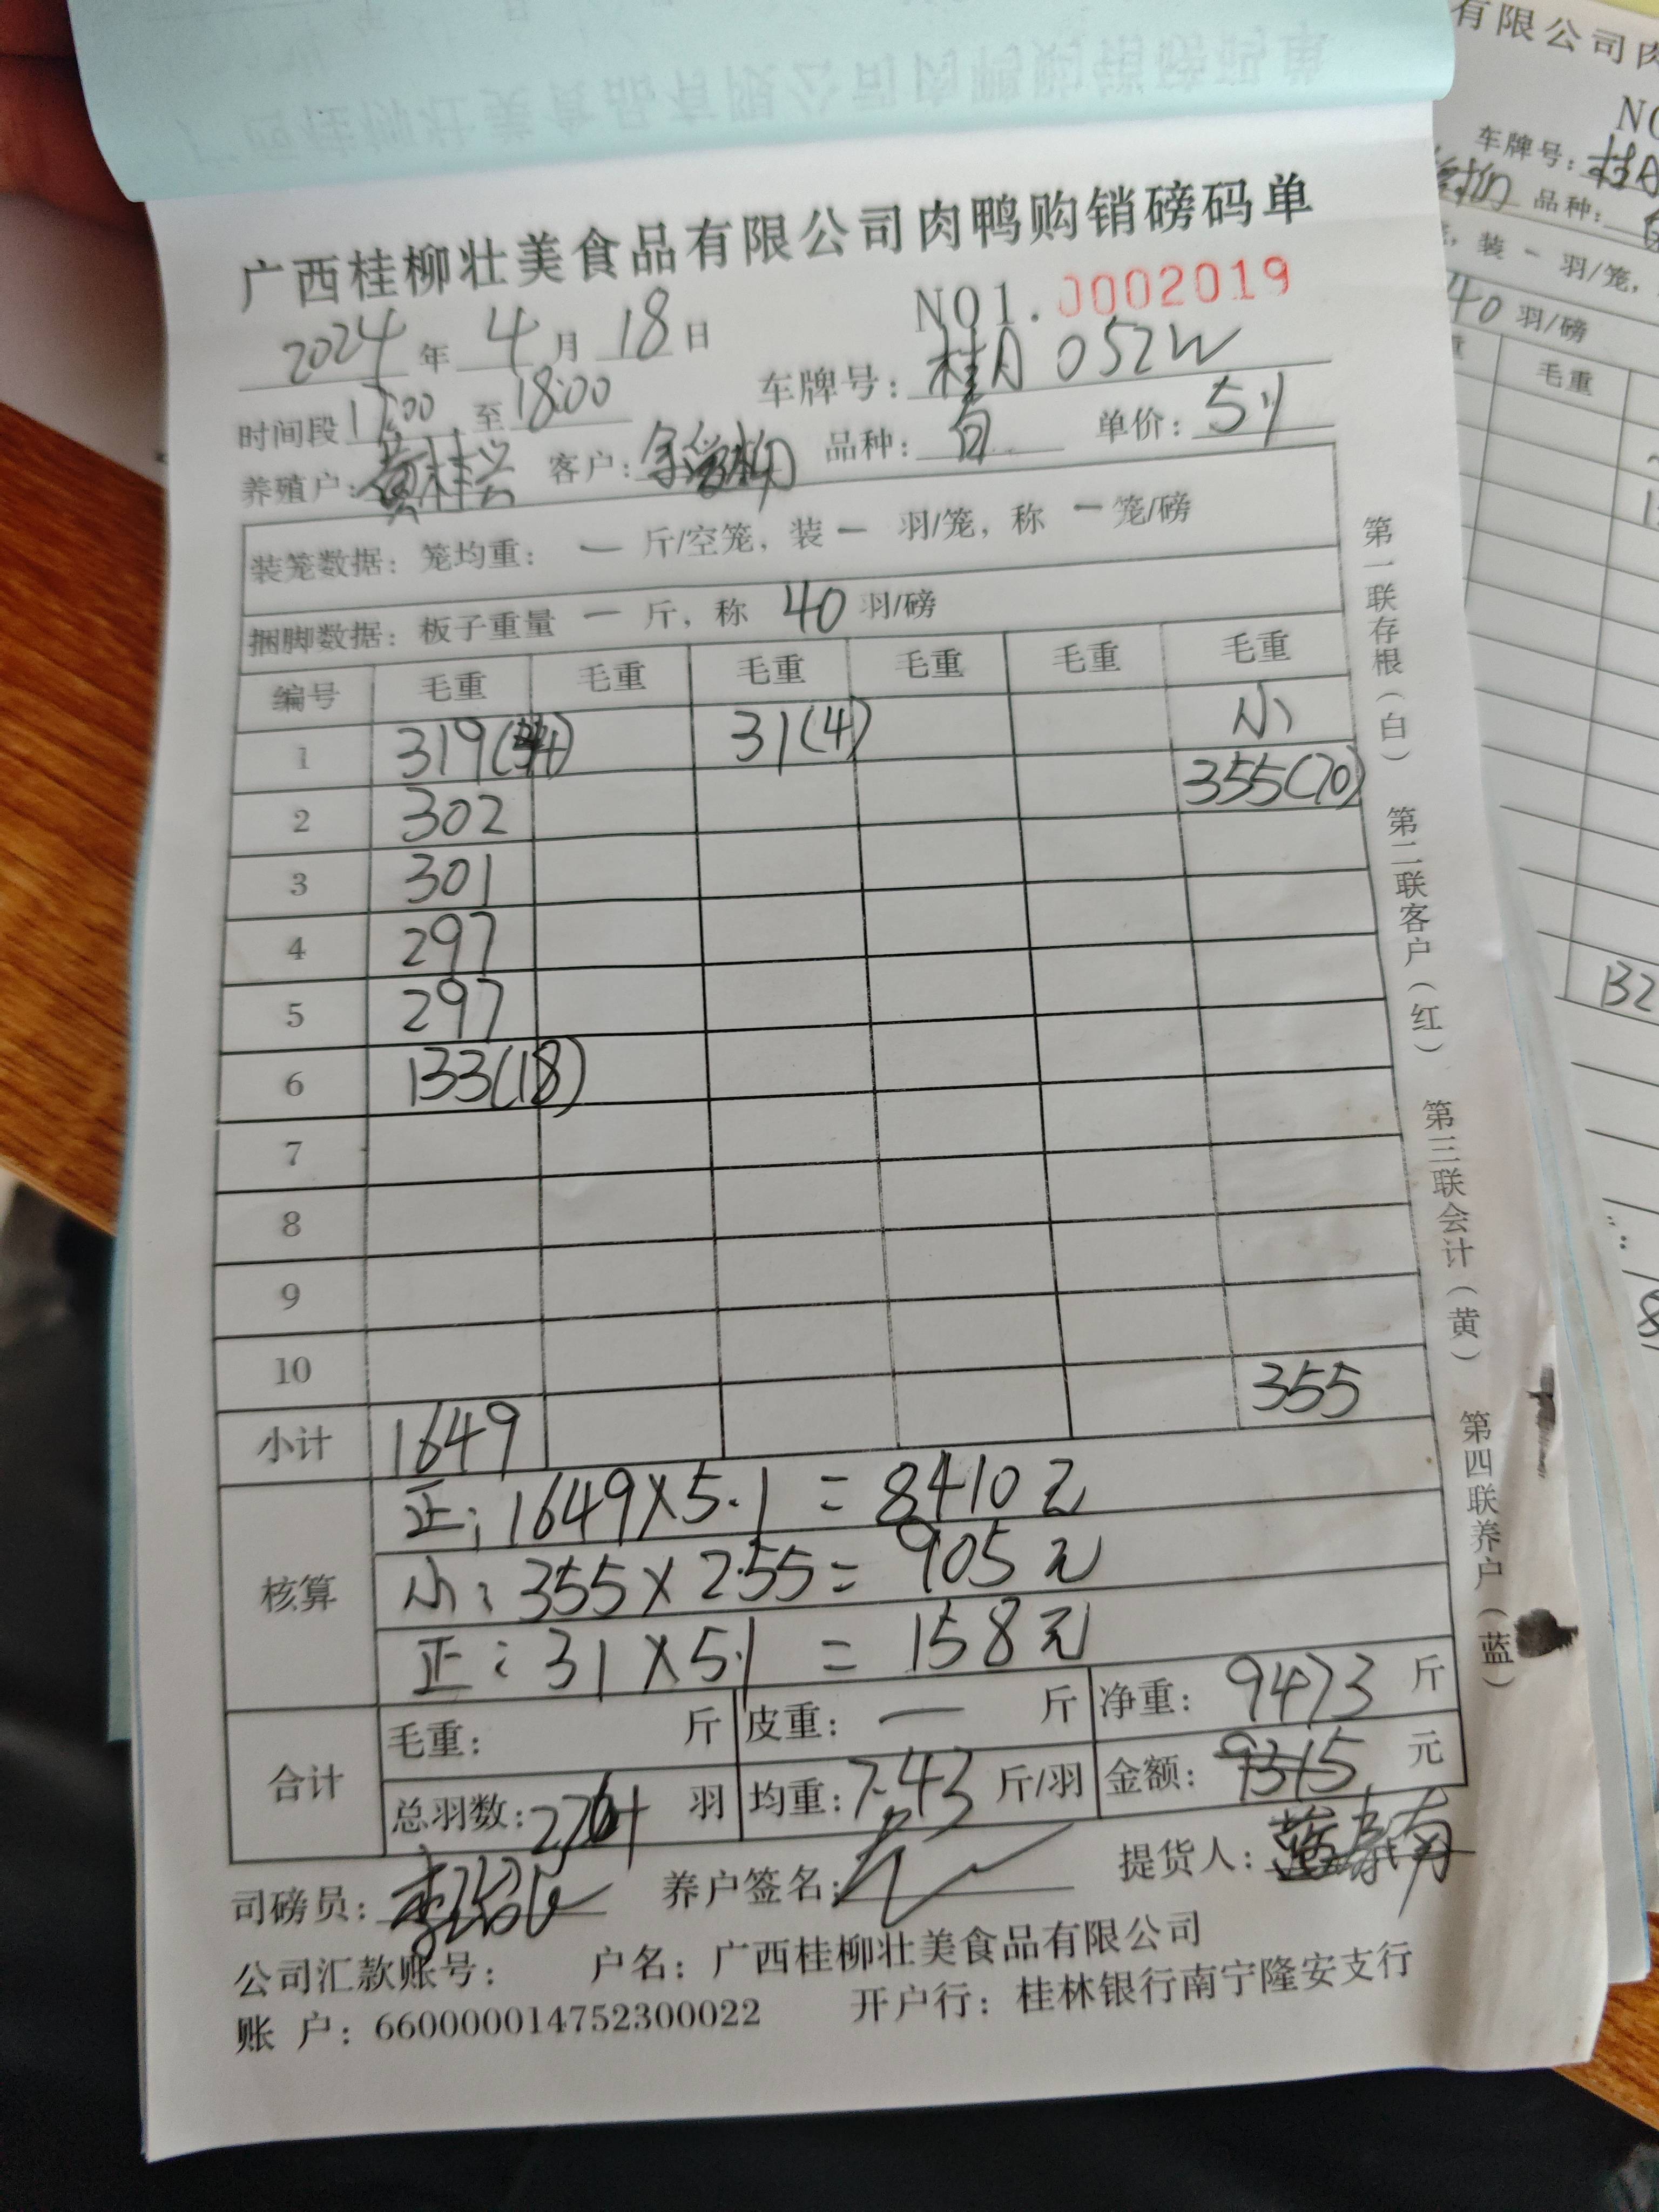 广西桂柳壮美食品有限公司肉鸭购销磅码单
NO1.0002019
2024年 4月 18日
时间段 17:00 至 18:00 车牌号: 桂A 052W
养殖户: 黄桂兴 客户: 品种: 白 单价: 5.1
装笼数据: 笼均重: — 斤/空笼, 装 — 羽/笼, 称 — 笼/磅
捆脚数据: 板子重量 — 斤, 称 40 羽/磅
编号 毛重 毛重 毛重 毛重 毛重 毛重
1 319 31(4) 小
2 302 355(70)
3 301
4 297
5 297
6 133(18)
7
8
9
10
小计 1649 355
核算
正: 1649×5.1 = 8410元
小: 355×2.55 = 905元
正: 31×5.1 = 158元
合计
毛重: 斤 皮重: — 斤 净重: 9473 斤
总羽数: 羽 均重: 7.43 斤/羽 金额: 9315 元
司磅员: 养户签名: 提货人:
公司汇款账号: 户名: 广西桂柳壮美食品有限公司
账 户: 660000014752300022 开户行: 桂林银行南宁隆安支行
第一联存根(白) 第二联客户(红) 第三联会计(黄) 第四联养户(蓝)
有限公司肉
NO
车牌号: 桂A
品种:
装 — 羽/笼,
40 羽/磅
毛重
132